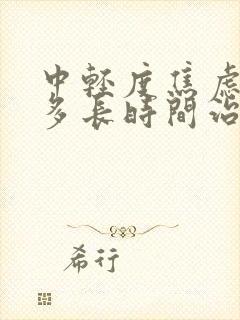 中輕度焦慮
多長時間治
希行